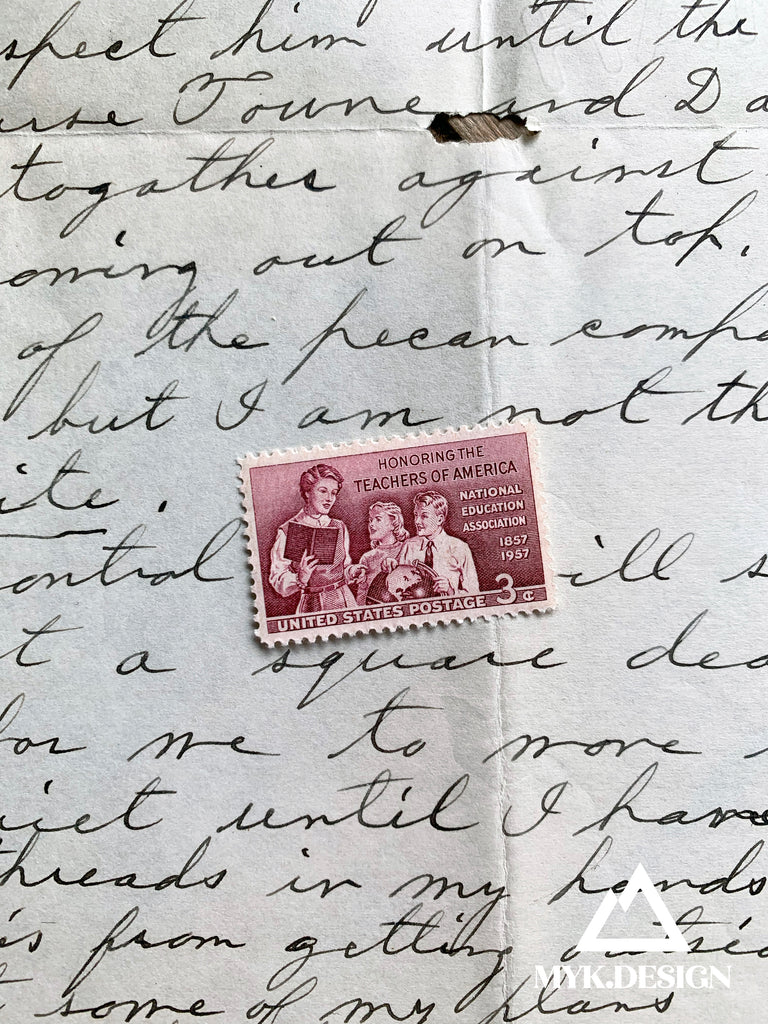 spect him until the
Towne and Da
togather against
oming out on top.
of the pecan compa
but I am not th
ite.
HONORING THE
TEACHERS OF AMERICA
NATIONAL
EDUCATION
ASSOCIATION
1857
1957
UNITED STATES POSTAGE 3¢
ontrol ill s
t a square dea
for me to move
uiet until I have
threads in my hands
is from getting outsid
t some of my plans
MYK.DESIGN